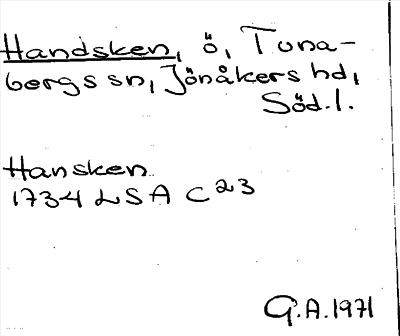 Handsken, ö, Tuna-
bergs sn, Jönåkers hd,
Söd.l.
Hansken
1734 LSA C23
G.A.1971